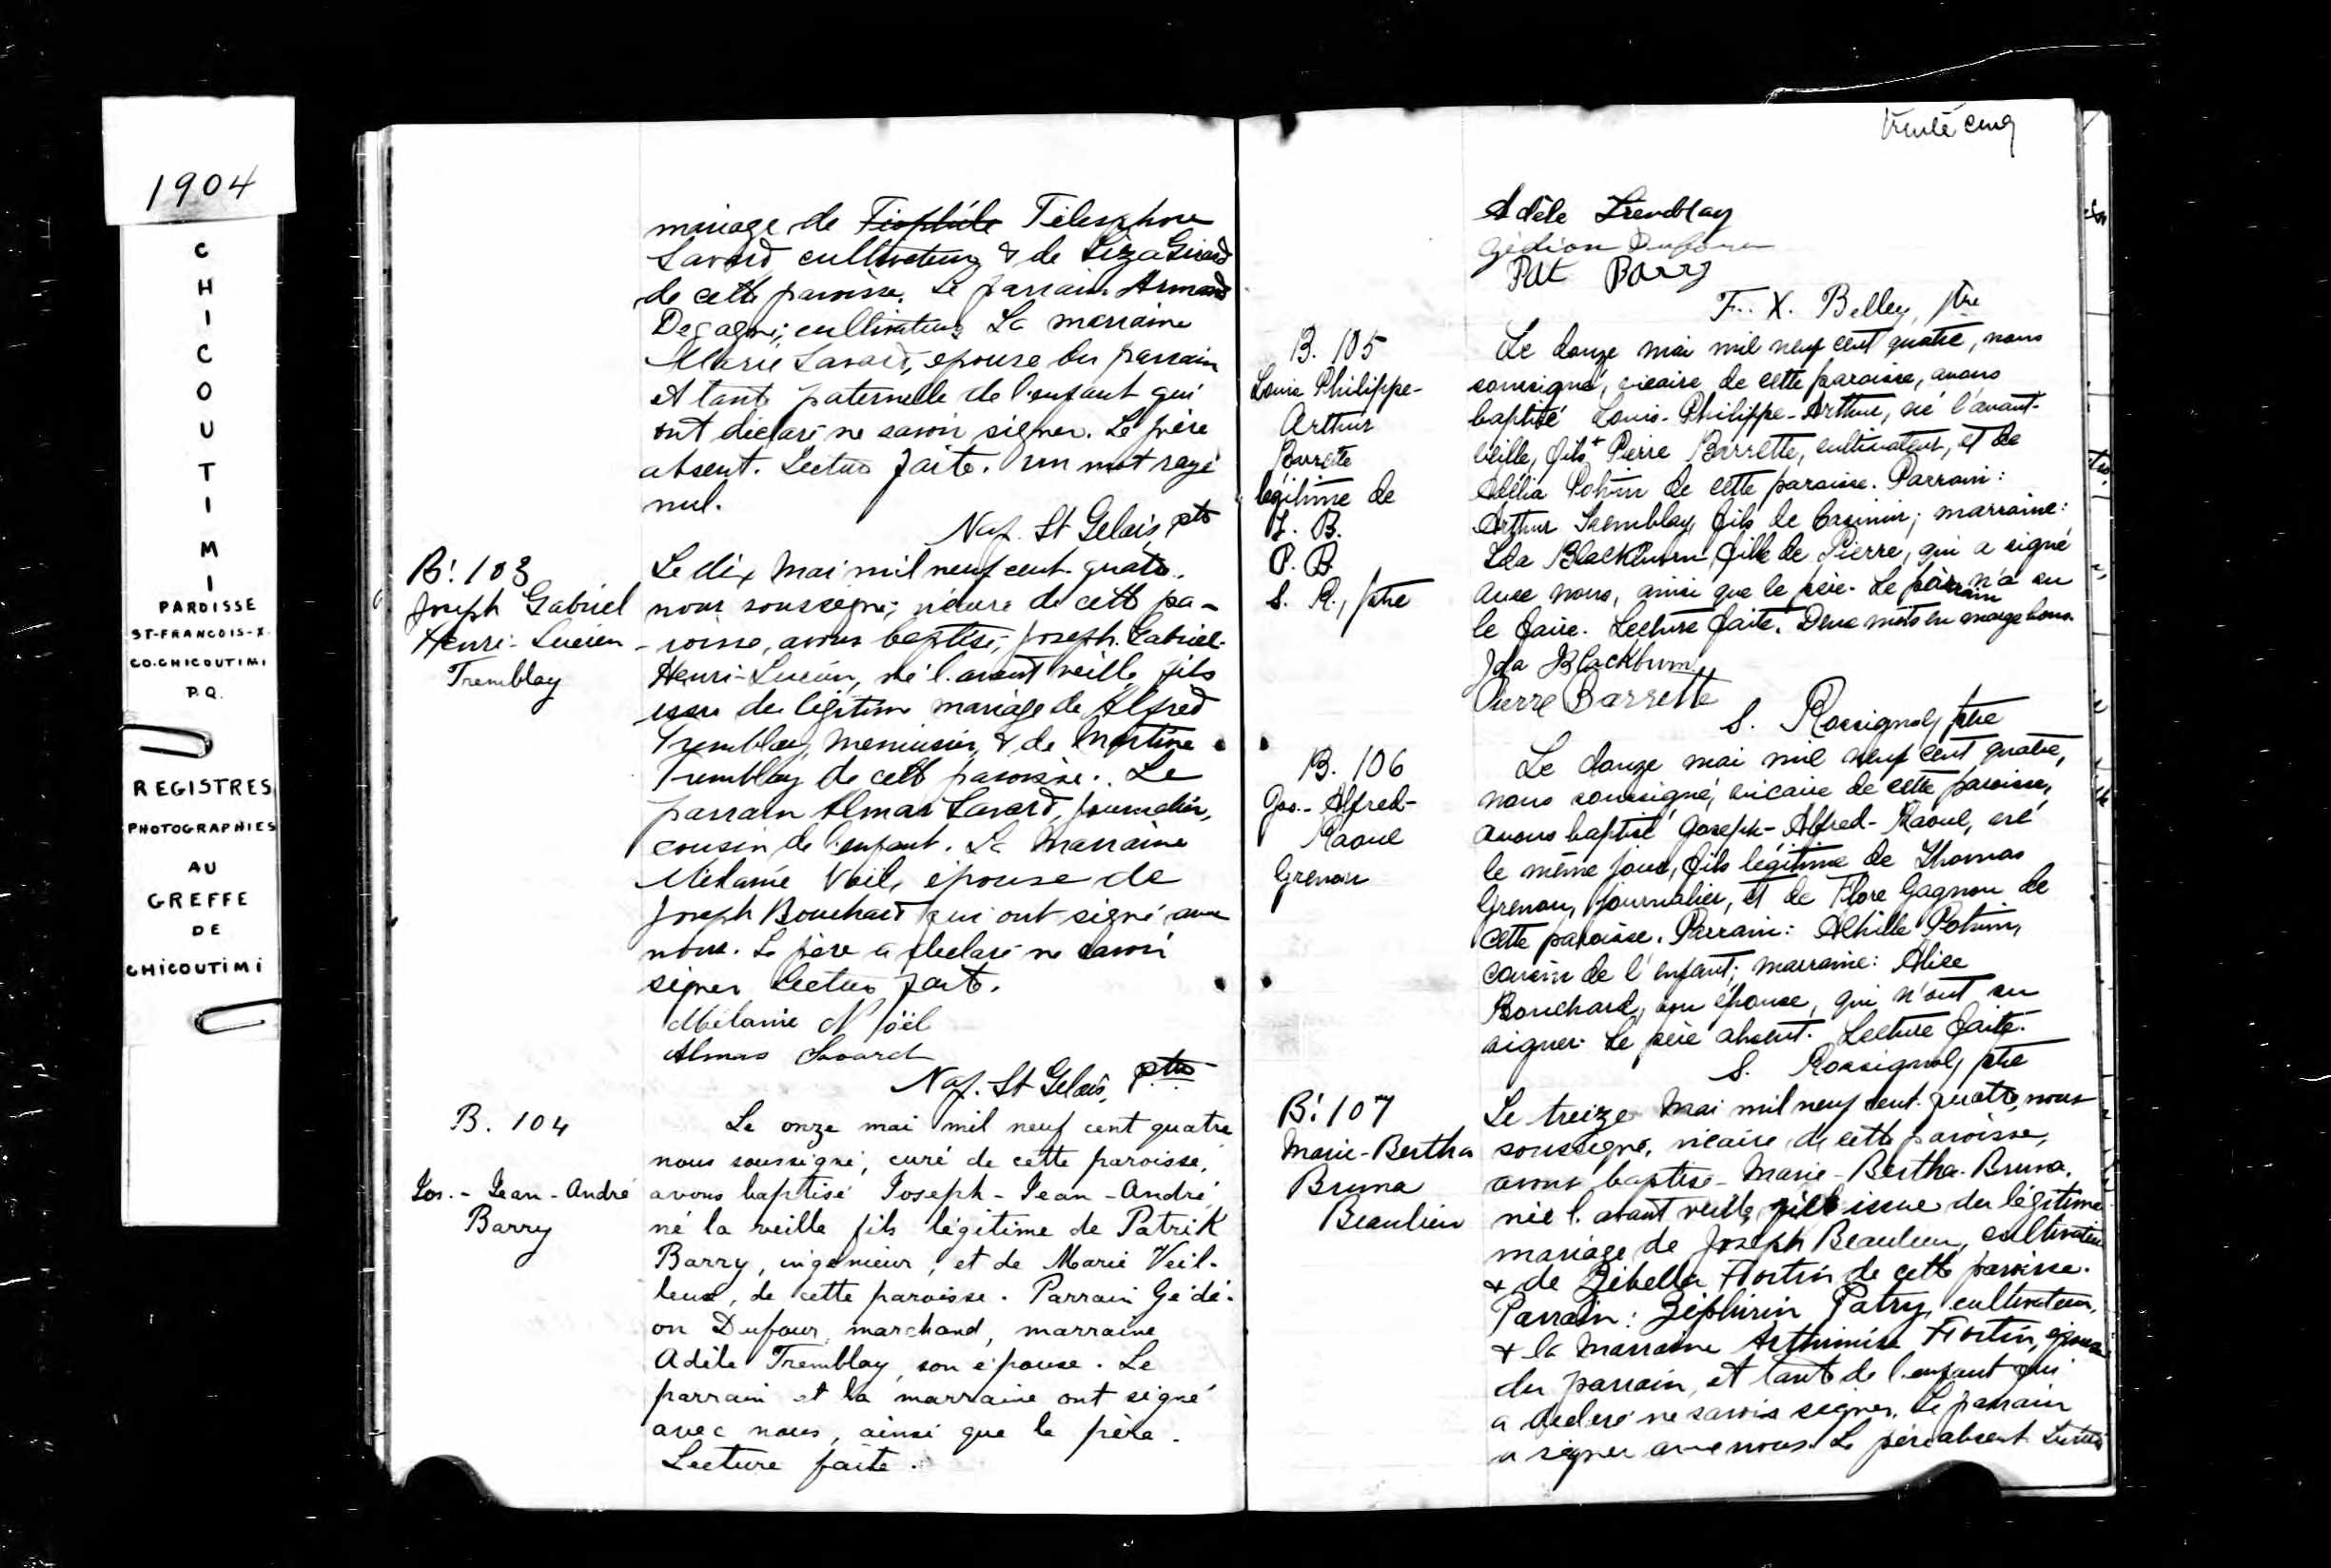 1904
C
H
I
C
O
U
T
I
M
I
PAROISSE
ST-FRANCOIS-X.
CO.CHICOUTIMI
P.Q.
REGISTRES
PHOTOGRAPHIES
AU
GREFFE
DE
CHICOUTIMI
mariage de Téléphore
Savard cultivateur & de Liza Girard
de cette paroisse. Le parrain Armand
Degagné, cultivateur La marraine
Marie Savard, épouse du parrain
et tante paternelle de l'enfant qui
ont déclaré ne savoir signer. Le père
absent. Lecture faite. un mot rayé
nul.
Nap. St Gelais, ptre
B. 103
Joseph Gabriel
Henri-Lucien
Tremblay
Le dix Mai mil neuf cent quatre
nous soussigné, vicaire de cette pa-
roisse, avons baptisé, Joseph. Gabriel-
Henri-Lucien, né l'avant veille, fils
issu du légitime mariage de Alfred
Tremblay, menuisier, & de Martine
Tremblay de cette paroisse. Le
parrain Almas Savard, journalier,
cousin de l'enfant. La Marraine
Mélanie épouse de
Joseph Bouchard qui ont signé avec
nous. Le père a déclaré ne savoir
signer Lecture faite.
Mélanie Noël
Almas Savard
Nap. St Gelais, ptre
B. 104
Jos.- Jean-André
Barry
Le onze mai mil neuf cent quatre
nous soussigné, curé de cette paroisse,
avons baptisé Joseph-Jean-André,
né la veille fils légitime de Patrik
Barry, ingénieur, et de Marie Veil-
leux, de cette paroisse. Parrain Gédé-
on Dufour, marchand, marraine
Adèle Tremblay, son épouse. Le
parrain et la marraine ont signé
avec nous, ainsi que le père.
Lecture faite.
cinq
Adèle Tremblay
Gédéon Dufour
Pat Barry
F. X. Belley, ptre
B. 105
Louis Philippe-
Arthur
Barrette
légitime de
P. B.
S. R., ptre
Le douze mai mil neuf cent quatre, nous
soussigné, vicaire de cette paroisse, avons
baptisé Louis-Philippe-Arthur, né l'avant-
veille, fils + Pierre Barrette, cultivateur, et de
Adélia Potvin de cette paroisse. Parrain:
Arthur Tremblay, fils de Casimir; marraine:
Ida Blackburn, fille de Pierre, qui a signé
avec nous, ainsi que le père. Le parrain n'a su
le faire. Lecture faite. Deux mots en marge bons.
Ida Blackburn
Pierre Barrette
S. Rossignol, ptre
B. 106
Jos.- Alfred-
Raoul
Grenon
Le douze mai mil neuf cent quatre,
nous soussigné, vicaire de cette paroisse,
avons baptisé Joseph-Alfred-Raoul, né
le même jour, fils légitime de Thomas
Grenon, journalier, et de Flore Gagnon de
cette paroisse. Parrain: Achille Potvin,
cousin de l'enfant; marraine: Alice
Bouchard, son épouse, qui n'ont su
signer. Le père absent. Lecture faite.
S. Rossignol, ptre
B. 107
Marie-Bertha
Bruna
Beaulieu
Le treize Mai mil neuf cent quatre, nous
soussigné, vicaire de cette paroisse,
avons baptisé Marie-Bertha-Bruna,
née l'avant veille, fille issue du légitime
mariage de Joseph Beaulieu, cultivateur
& de Zébella Fortin de cette paroisse.
Parrain: Zéphirin Patry, cultivateur,
& la Marraine Arthimise Fortin, épouse
du parrain, et tante de l'enfant qui
a déclaré ne savoir signer. Le parrain
a signer avec nous. Le père absent Lecture